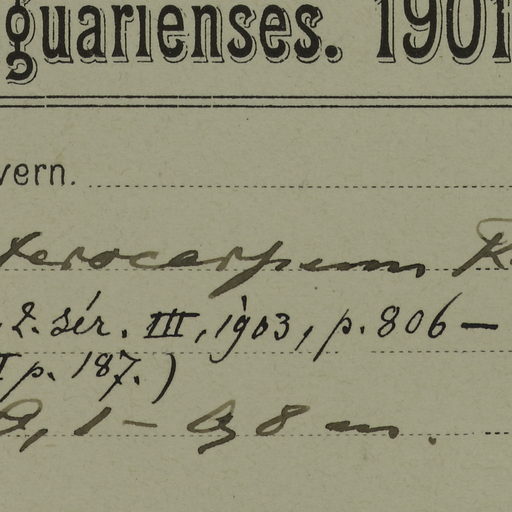 guarienses. 1901
vern.
terocarpum K
, 2. sér. III, 1903, p. 806 —
I p. 187.)
0,1 – 0,8 m.